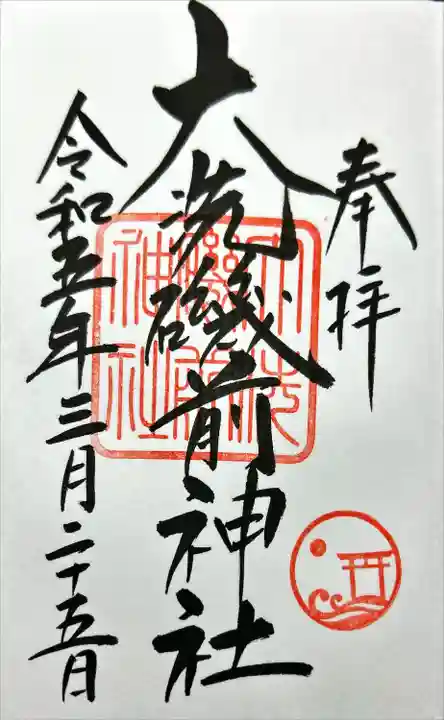 奉拝
大洗磯前神社
大洗
磯前
神社
令和五年三月二十五日